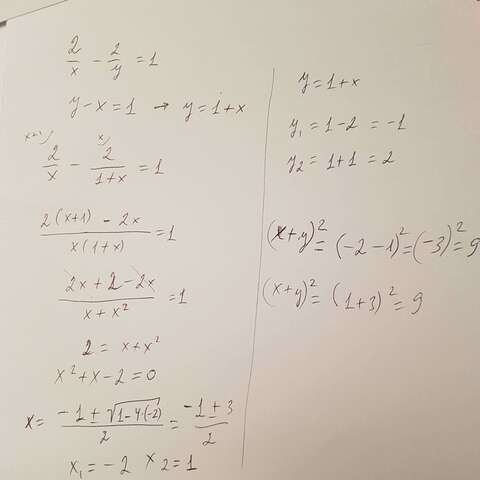 2/x - 2/y = 1
y - x = 1 → y = 1 + x
x+1) x)
2/x - 2/(1+x) = 1
(2(x+1) - 2x)/(x(1+x)) = 1
(2x + 2 - 2x)/(x + x²) = 1
2 = x + x²
x² + x - 2 = 0
x = (-1 ± √(1-4·(-2)))/2 = (-1 ± 3)/2
x₁ = -2 x₂ = 1
y = 1 + x
y₁ = 1 - 2 = -1
y₂ = 1 + 1 = 2
(x+y)² = (-2-1)² = (-3)² = 9
(x+y)² = (1+3)² = 9